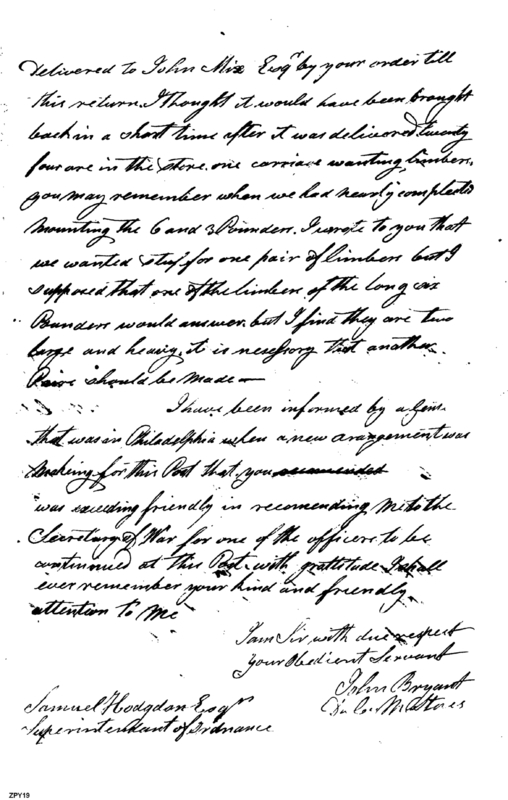 delivered to John Mix Esqr by your order till
this return. I thought it would have been brought
back in a short time after it was delivered, twenty
four are in the store. one carriage wanting limbers,
you may remember when we had nearly compleated
mounting the 6 and 3 Pounders. I wrote to you that
we wanted stuf for one pair of limbers but I
supposed that one of the limbers of the long six
Pounders would answer. but I find they are two
large and heavy, it is nessessory that another
Paire should be made —
I have been informed by a Gent.
that was in Philadelphia when a new arangement was
making for this Post that you recomended
was exceeding friendly in recomending me to the
Secretary of War for one of the officers to be
continued at this Post. with gratitude I shall
ever remember your kind and friendly
attention to me
I am Sir with due respect
your Obedient Servant
John Bryant
Samuel Hodgdon Esqr
Superintendant of Ordnance
ZPY19